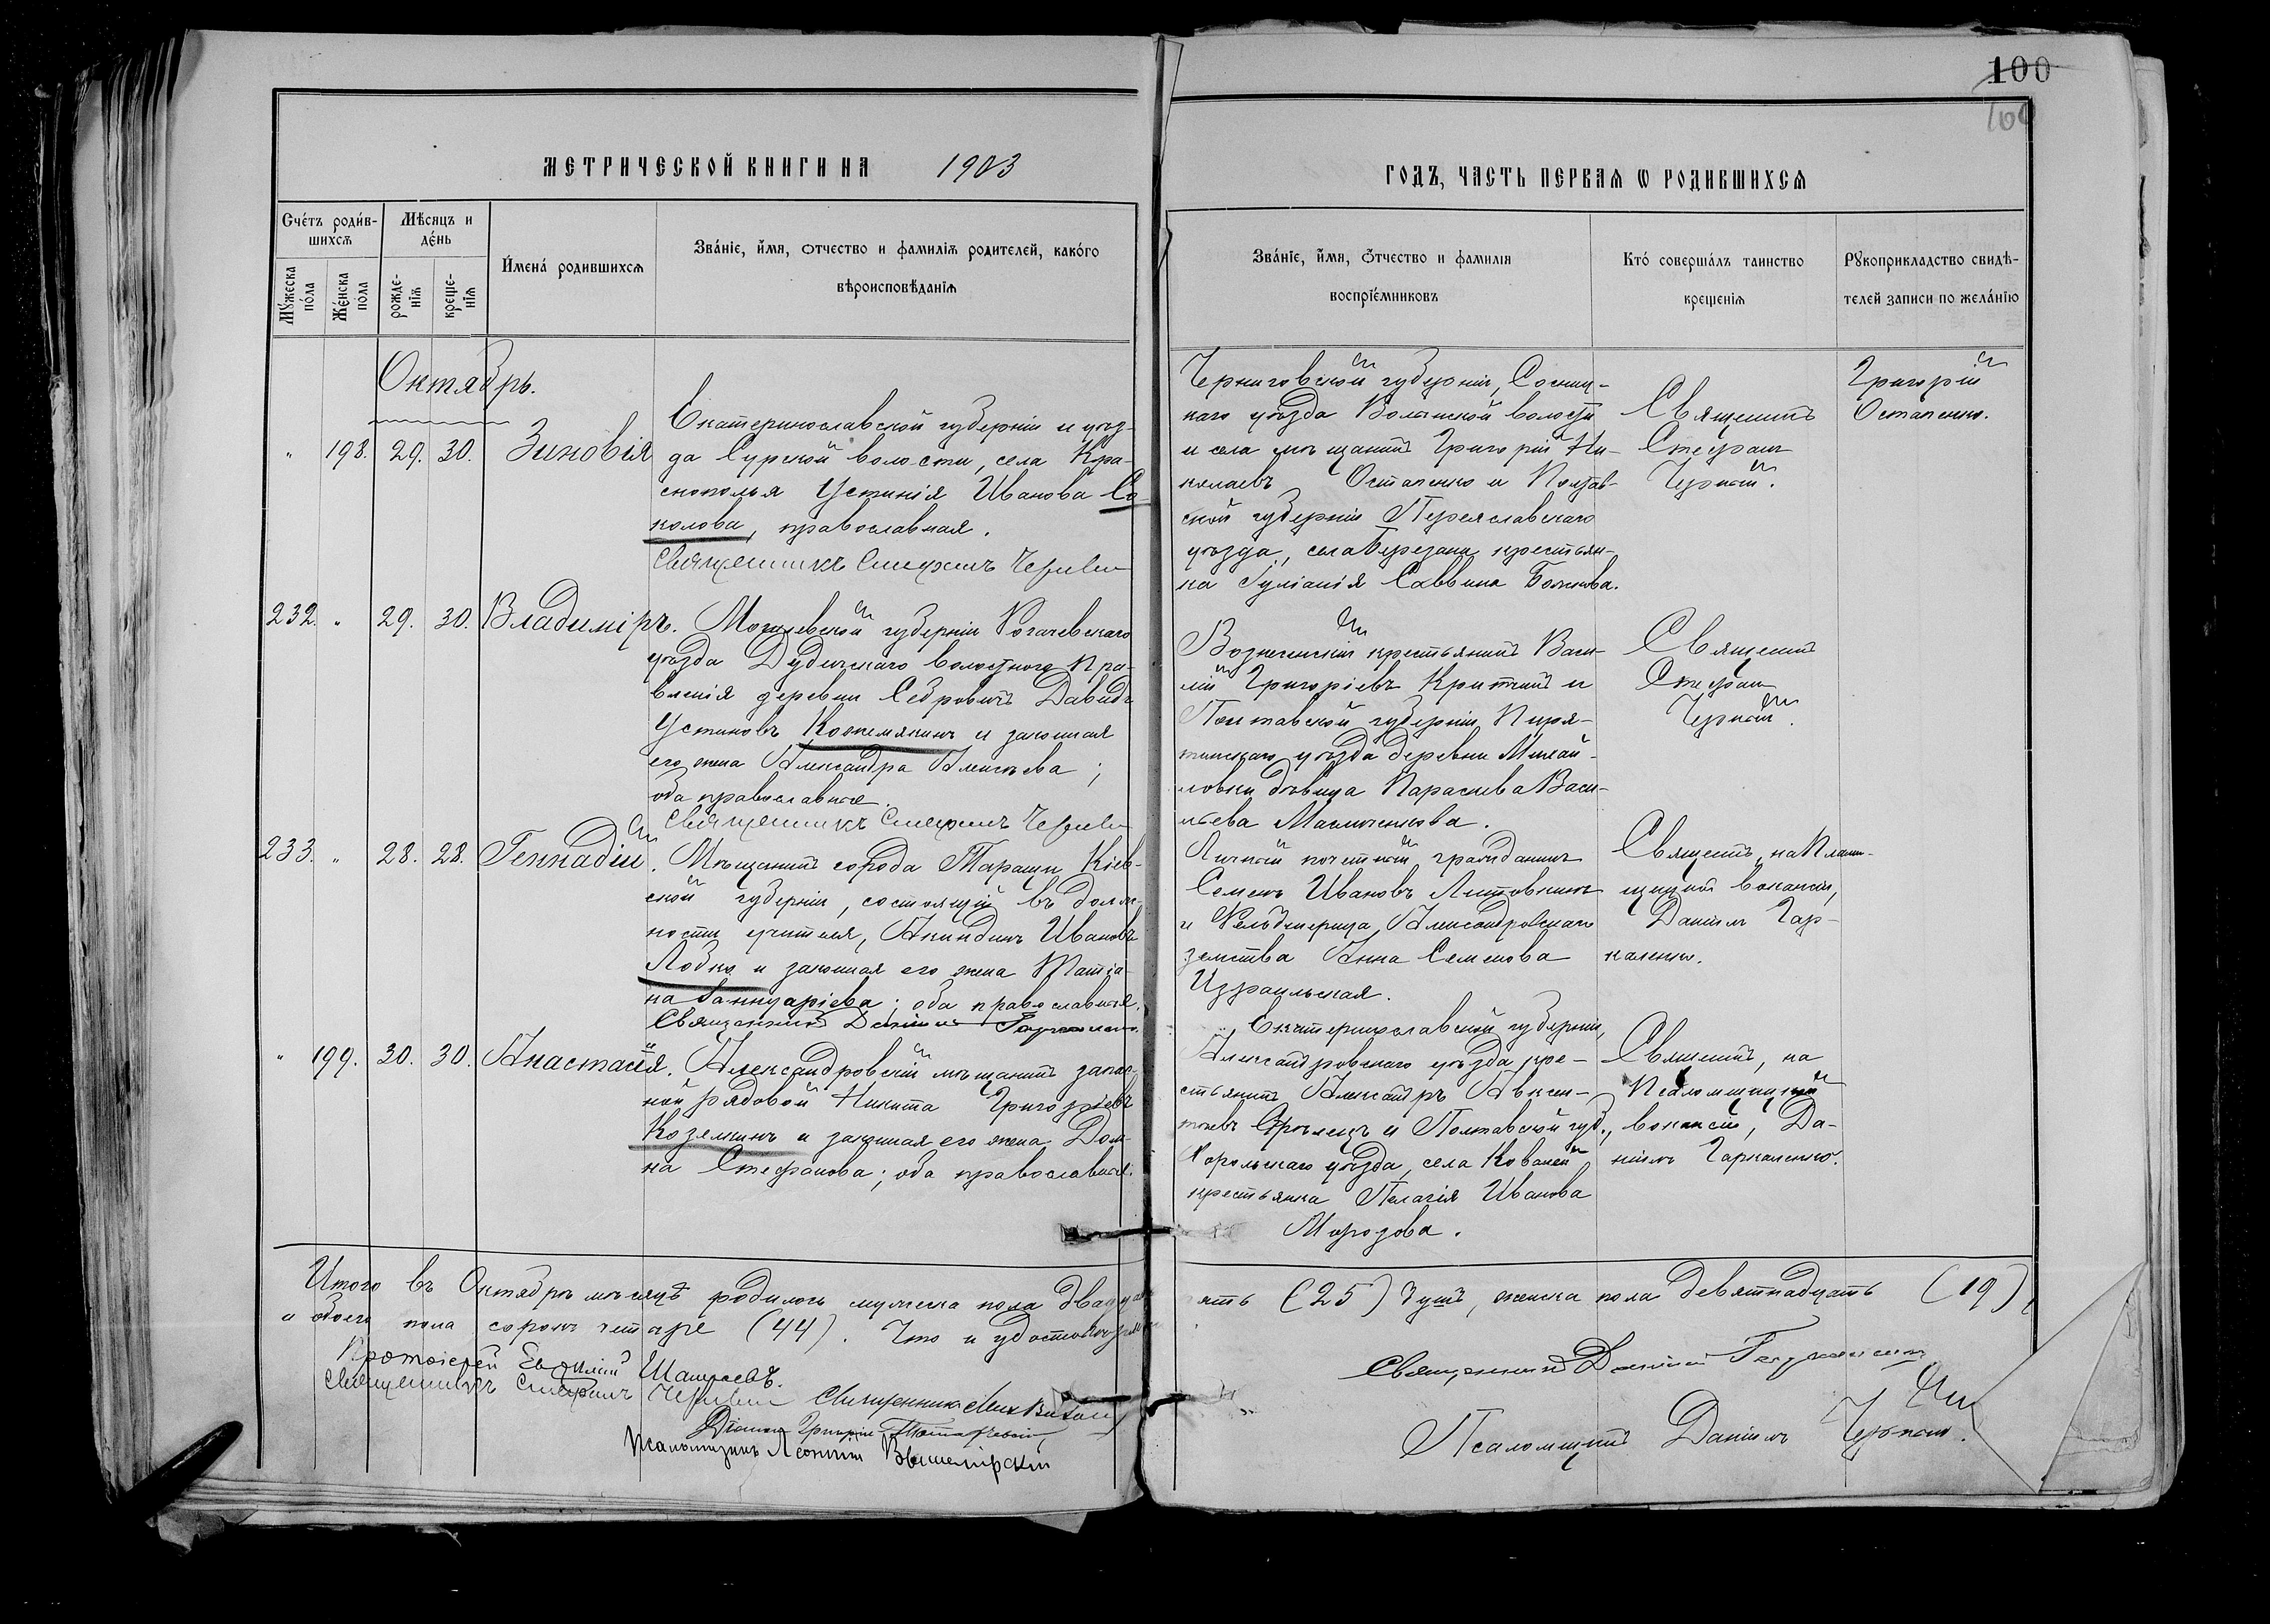 100
100
МЕТРИЧЕСКОЙ КНИГИ НА 1903
ГОДЪ, ЧАСТЬ ПЕРВАЯ Ѡ РОДИВШИХСЯ
Счетъ родив-
шихся
Мѣсяцъ и
день
Имена родившихся
Званіе, имя, отчество и фамилія родителей, какого
вѣроисповѣданія
Мужеска
пола
Женска
пола
рожде-
нія
креще-
нія
Званіе, имя, отчество и фамилія
воспріемниковъ
Кто совершалъ таинство
крещенія
Рукоприкладство свидѣ-
телей записи по желанію
Октябрь.
" 198. 29. 30. Зиновія
Екатеринославской губерніи и уѣз-
да Сурской волости, села Кра-
снополья Устинія Иванова Со-
колова, православная.
Священникъ Стефанъ
Черниговской губерніи, Сосниц-
каго уѣзда Волынской волости
и села мѣщанинъ Григорій Ни-
колаевъ Остапенко и Полтав-
ской губерніи Переяславскаго
уѣзда, села Березани крестьян-
ка Іуліанія Саввина
Священникъ
Стефанъ
Черный.
Григорій
Остапенко.
232. " 29. 30. Владиміръ.
Могилевской губерніи Рогачевскаго
уѣзда Дудичскаго волостного пра-
вленія деревни Седровичъ Давидъ
Устиновъ Кожемякинъ и законная
его жена Александра Алексѣева;
оба православные.
Священникъ Стефанъ
Вознесенскій крестьянинъ Васи-
лій Григоріевъ и
Полтавской губерніи Пиря-
тинскаго уѣзда деревни Михай-
ловки дѣвица Параскева Васи-
льева
Священникъ
Стефанъ
Черный.
233. " 28. 28. Геннадій.
Мѣщанинъ города Таращи Кіев-
ской губерніи, состоящій въ долж-
ности учителя, Акиндинъ Ивановъ
Лобко и законная его жена Татіа-
на Іаннуаріева; оба православные.
Священникъ Даніилъ
Личный почетный гражданинъ
Семенъ Ивановъ Литовкинъ
и Фельдшерица Александровскаго
земства Анна Семенова
Израильская.
Священникъ, на Псалом-
щицкой вакансіи,
Даніилъ Гар-
каленко.
" 199. 30. 30. Анастасія.
Александровскій мѣщанинъ запас-
ной рядовой Никита Григоріевъ
Козелкинъ и законная его жена Дом-
на Стефанова; оба православные.
Екатеринославской губерніи,
Александровскаго уѣзда, кре-
стьянинъ Александръ Авксен-
тіевъ и Полтавской губ.,
Хорольскаго уѣзда, села Ковалей
крестьянка Пелагія Иванова
Морозова.
Священникъ, на
Псаломщицкой
вакансіи, Да-
ніилъ Гаркаленко.
Итого въ Октябрѣ мѣсяцѣ родилось мужеска пола двадцать пять (25) душъ, женска пола девятнадцать (19),
а обоего пола сорокъ четыре (44). Что и удостовѣряемъ
Протоіерей Шамраевъ.
Священникъ Стефанъ
Священникъ
Діаконъ Григорій
Псаломщикъ Леонтій Вышемірскій
Священникъ Даніилъ Гаркаленко
Псаломщикъ Даніилъ Черный.